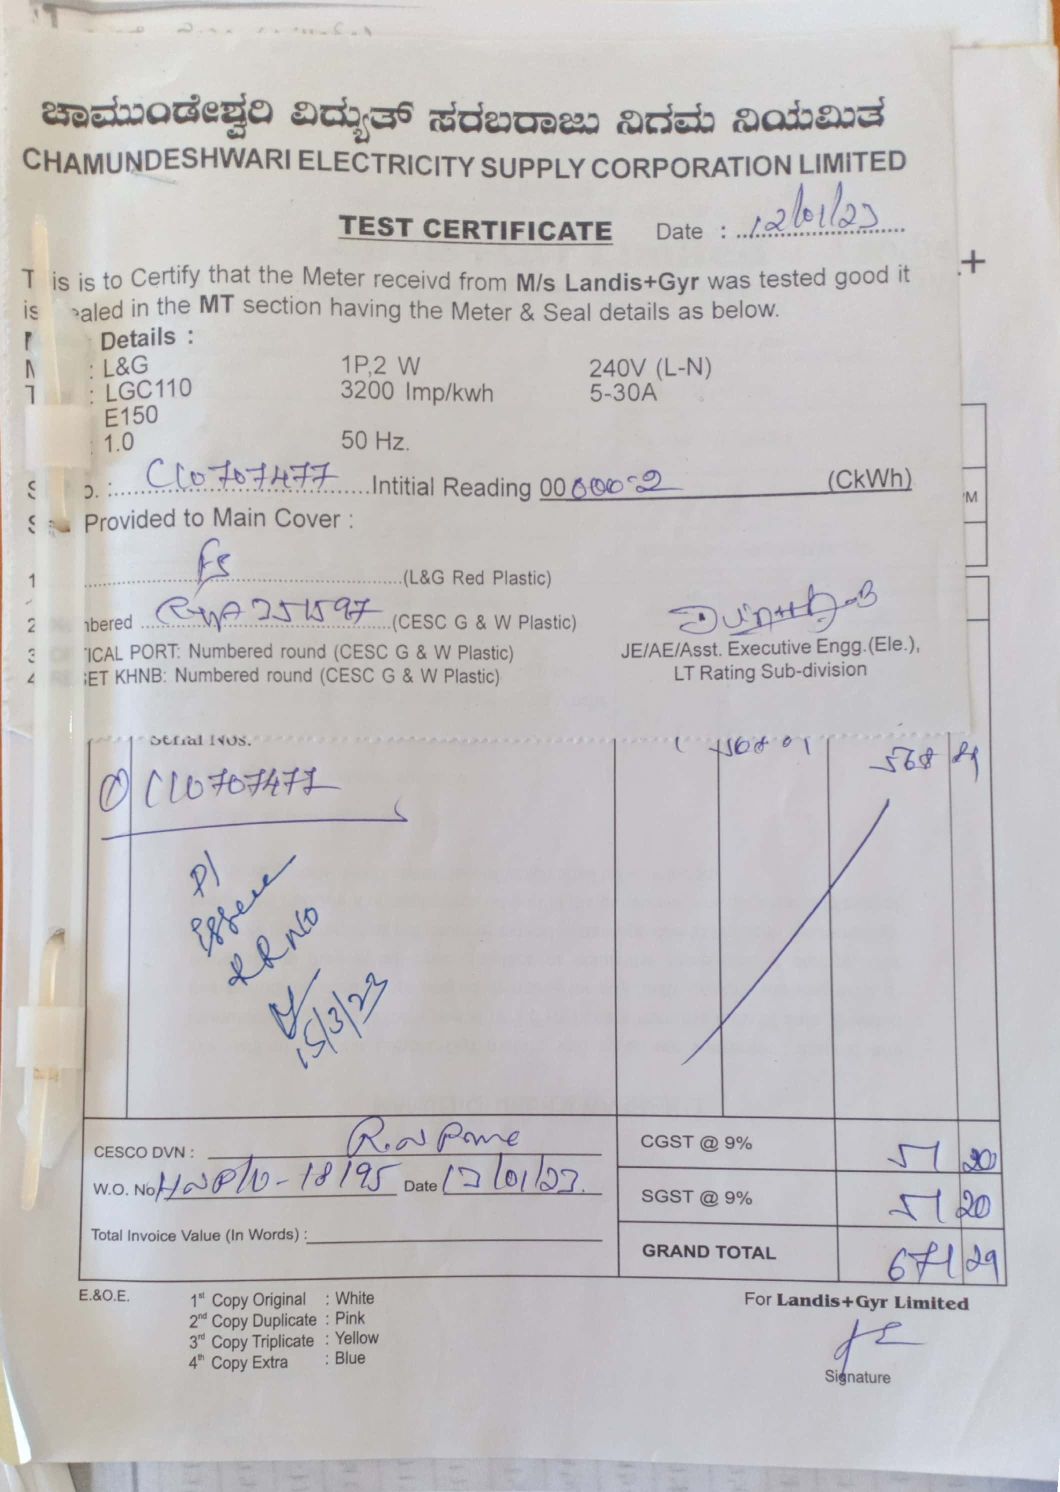 ಚಾಮುಂಡೇಶ್ವರಿ ವಿದ್ಯುತ್ ಸರಬರಾಜು ನಿಗಮ ನಿಯಮಿತ
CHAMUNDESHWARI ELECTRICITY SUPPLY CORPORATION LIMITED
TEST CERTIFICATE Date : 12/01/23
is is to Certify that the Meter receivd from M/s Landis+Gyr was tested good it
is ealed in the MT section having the Meter & Seal details as below.
Details :
: L&G 1P,2 W 240V (L-N)
: LGC110 3200 Imp/kwh 5-30A
E150
: 1.0 50 Hz.
C10707477 Intitial Reading 00 000.2 (CkWh)
Provided to Main Cover :
1 (L&G Red Plastic)
2 mbered 251597 (CESC G & W Plastic)
3 ICAL PORT: Numbered round (CESC G & W Plastic)
4 ET KHNB: Numbered round (CESC G & W Plastic)
JE/AE/Asst. Executive Engg.(Ele.),
LT Rating Sub-division
Serial Nos.
1 568
C10707477
P/
RRNO
15/3/23
CESCO DVN :
W.O. No 18195 Date 12/01/23.
Total Invoice Value (In Words) :
CGST @ 9% 51 20
SGST @ 9% 51 20
GRAND TOTAL 671 29
E.&O.E.
1st Copy Original : White
2nd Copy Duplicate : Pink
3rd Copy Triplicate : Yellow
4th Copy Extra : Blue
For Landis+Gyr Limited
Signature